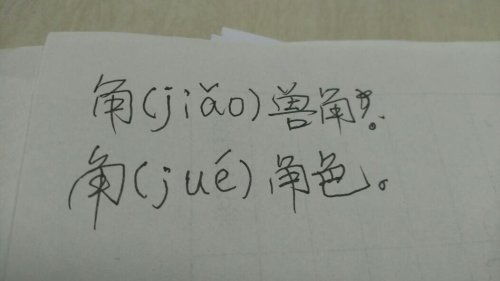 角(jiǎo)兽角。
角(jué)角色。